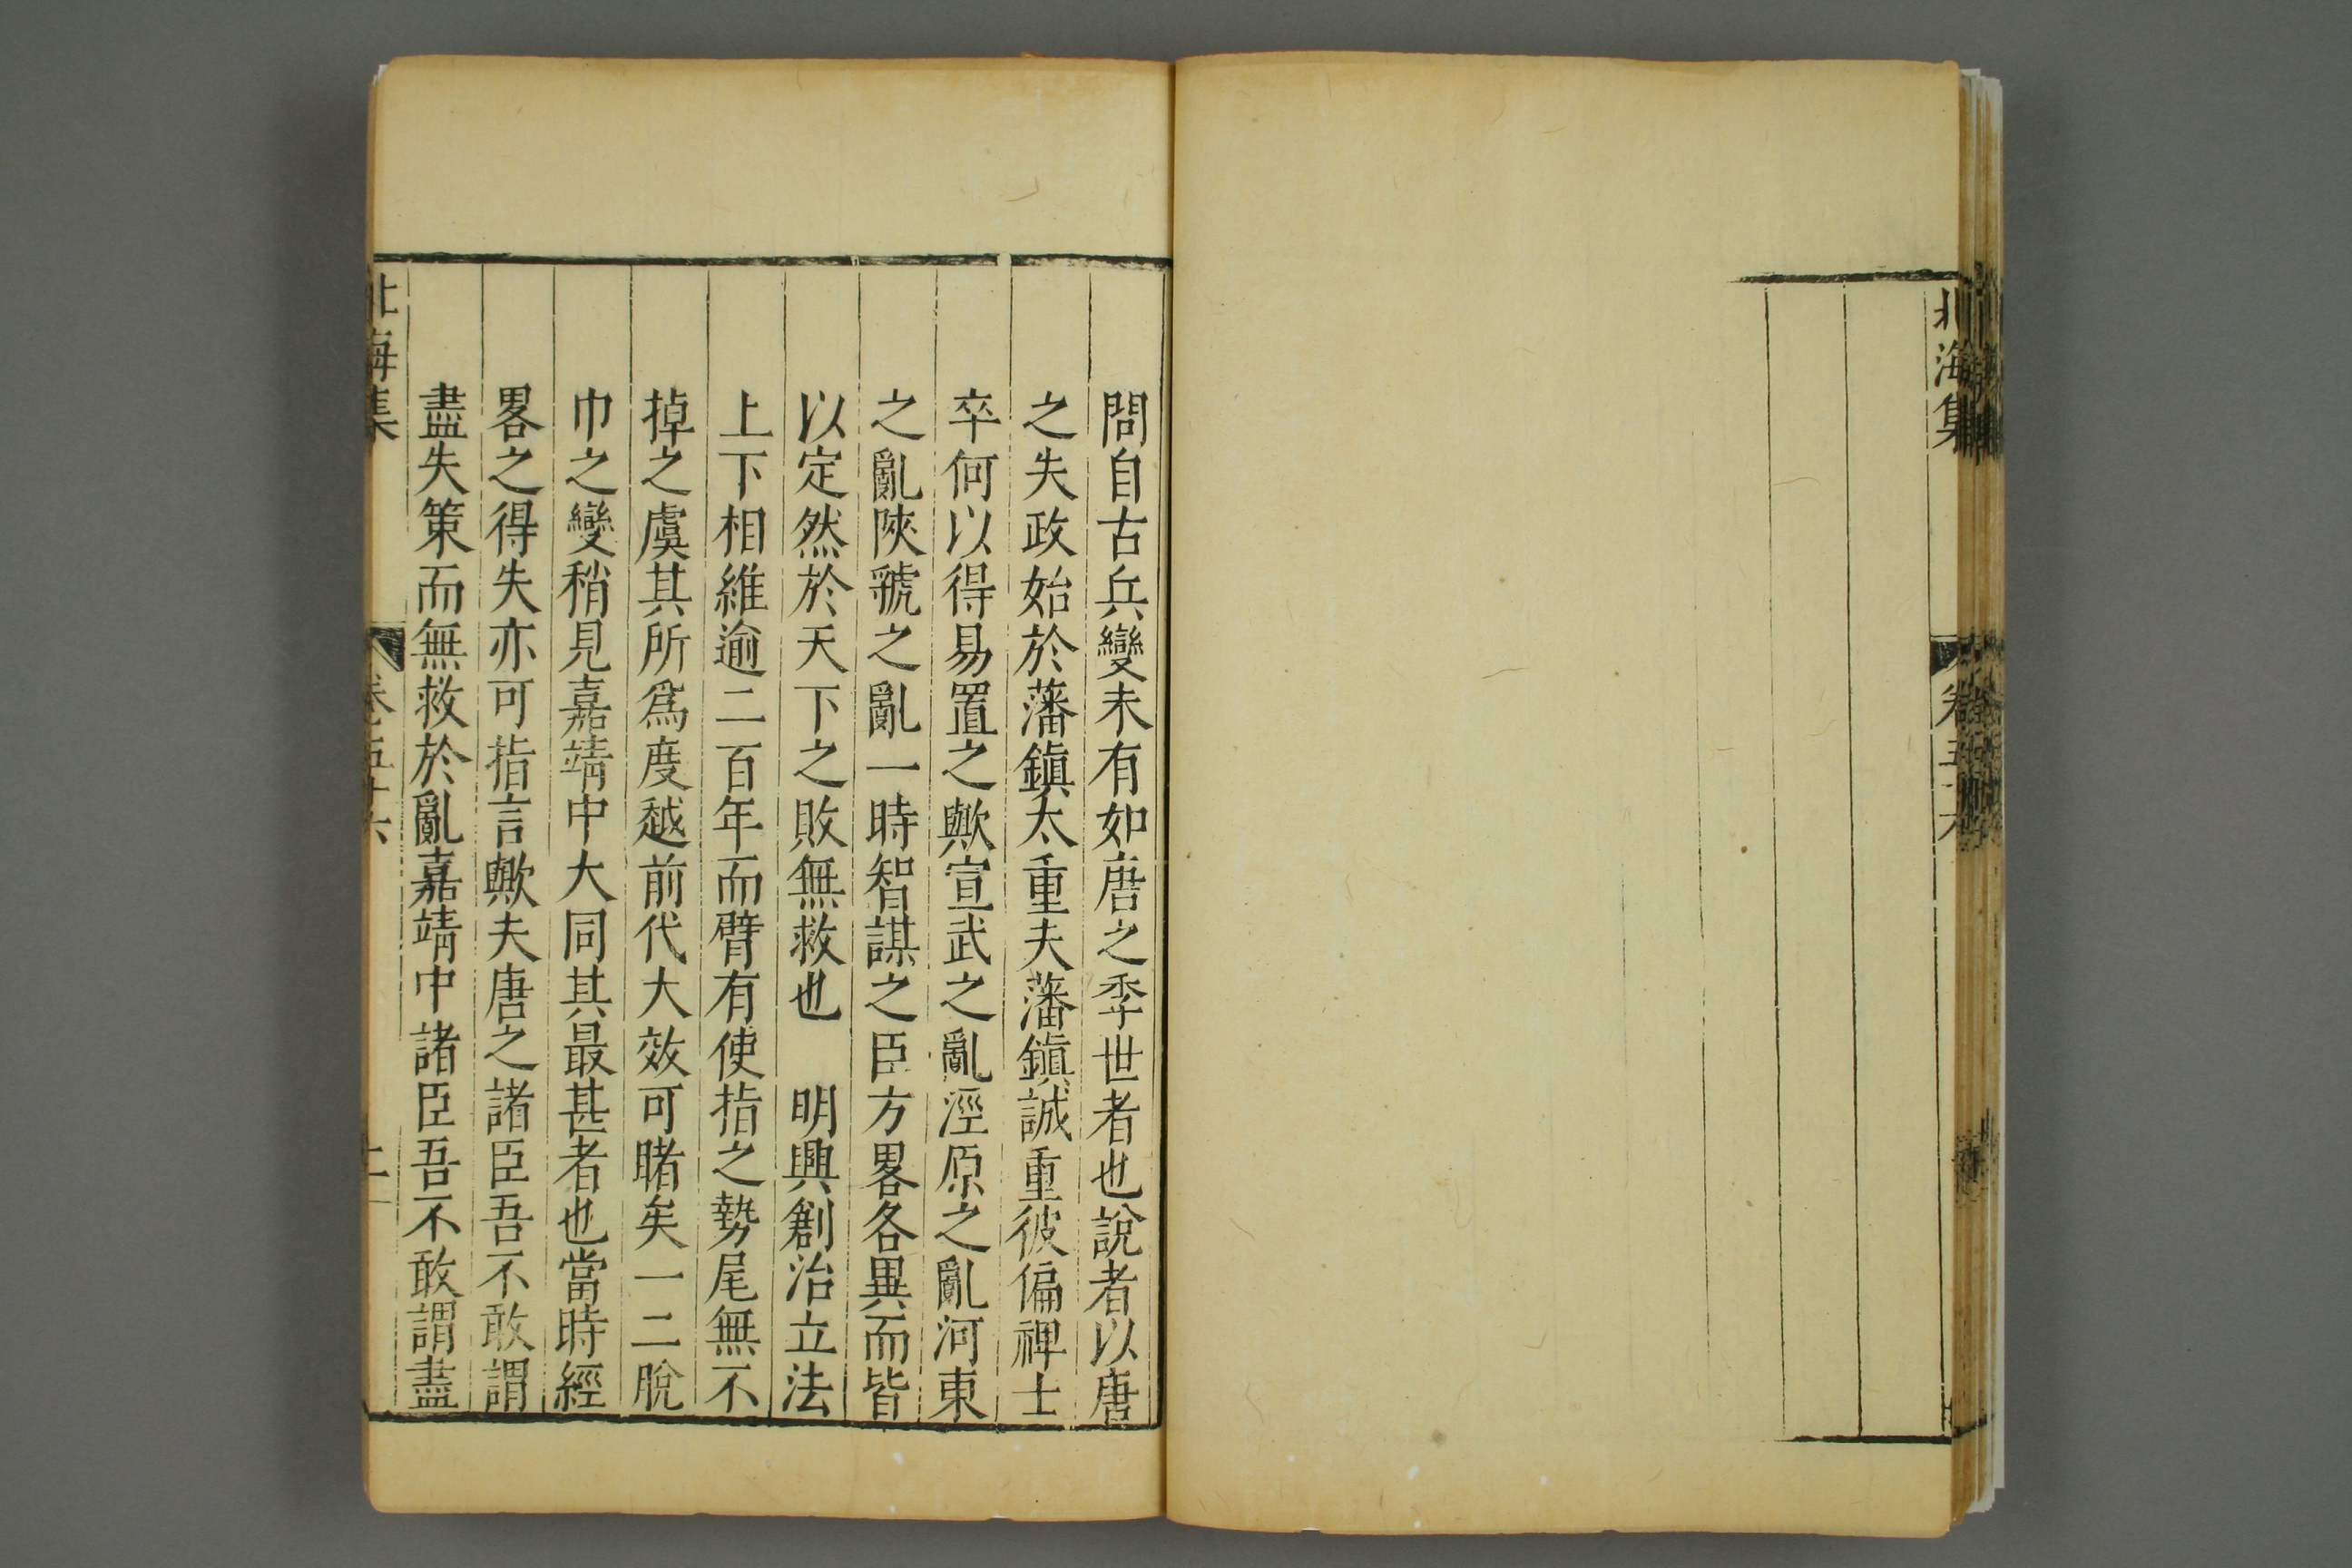 北海集
卷五十六
問自古兵變未有如唐之季世者也說者以唐
之失政始於藩鎮太重夫藩鎮誠重彼偏裨士
卒何以得易置之歟宣武之亂涇原之亂河東
之亂陝虢之亂一時智謀之臣方畧各異而皆
以定然於天下之敗無救也　明興創治立法
上下相維逾二百年而臂有使指之勢尾無不
掉之虞其所爲度越前代大效可睹矣一二脫
巾之變稍見嘉靖中大同其最甚者也當時經
畧之得失亦可指言歟夫唐之諸臣吾不敢謂
盡失策而無救於亂嘉靖中諸臣吾不敢謂盡
北海集
卷之五十六